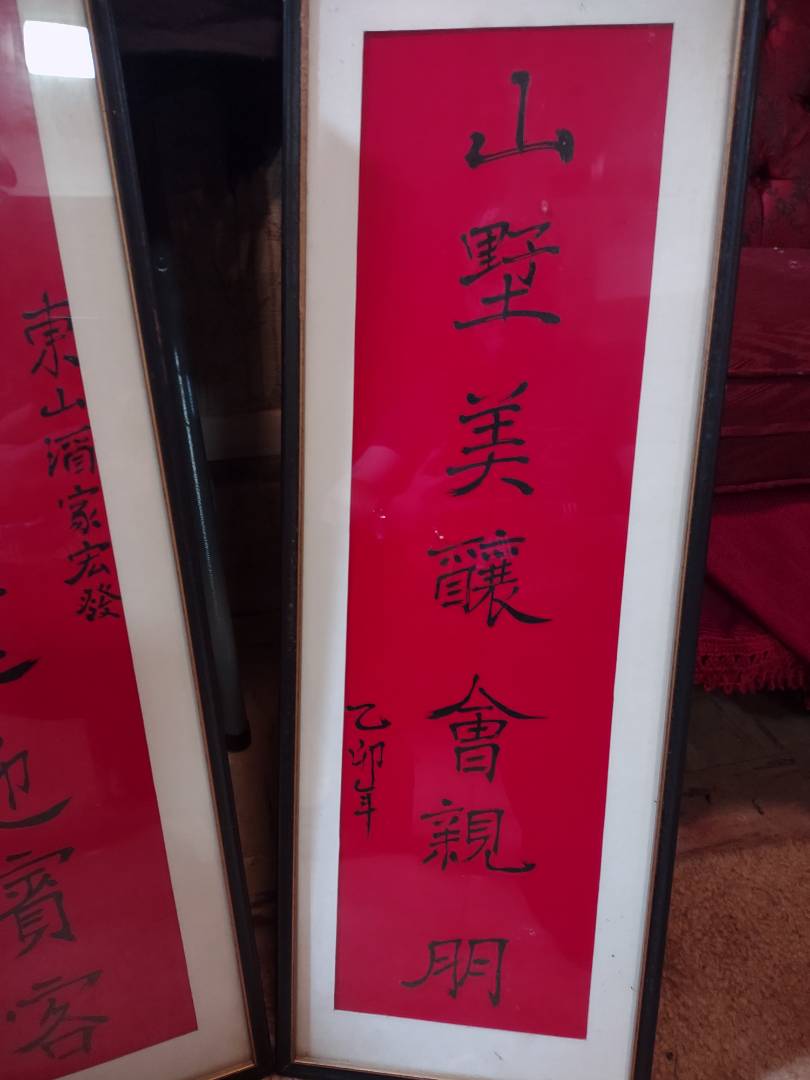 東山酒家宏發
迎賓客
山墅美釀會親朋
乙卯年